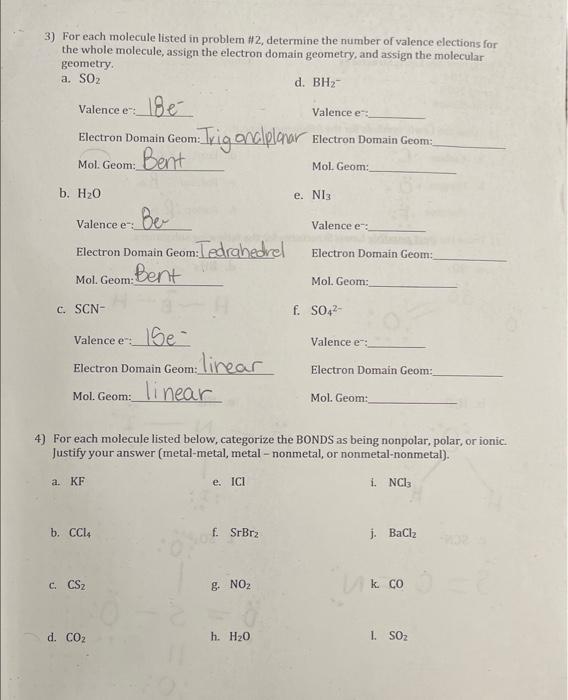 3) For each molecule listed in problem #2, determine the number of valence elections for
the whole molecule, assign the electron domain geometry, and assign the molecular
geometry.
a. SO₂
Valence e⁻: 18e⁻
Electron Domain Geom: Trigonalplanar
Mol. Geom: Bent
b. H₂O
Valence e⁻: 8e⁻
Electron Domain Geom: Tedrahedrel
Mol. Geom: Bent
c. SCN-
Valence e⁻: 16e⁻
Electron Domain Geom: linear
Mol. Geom: linear
d. BH₂⁻
Valence e⁻:
Electron Domain Geom:
Mol. Geom:
e. NI₃
Valence e⁻:
Electron Domain Geom:
Mol. Geom:
f. SO₄²⁻
Valence e⁻:
Electron Domain Geom:
Mol. Geom:
4) For each molecule listed below, categorize the BONDS as being nonpolar, polar, or ionic.
Justify your answer (metal-metal, metal – nonmetal, or nonmetal-nonmetal).
a. KF
e. ICl
i. NCl₃
b. CCl₄
f. SrBr₂
j. BaCl₂
c. CS₂
g. NO₂
k. CO
d. CO₂
h. H₂O
l. SO₂